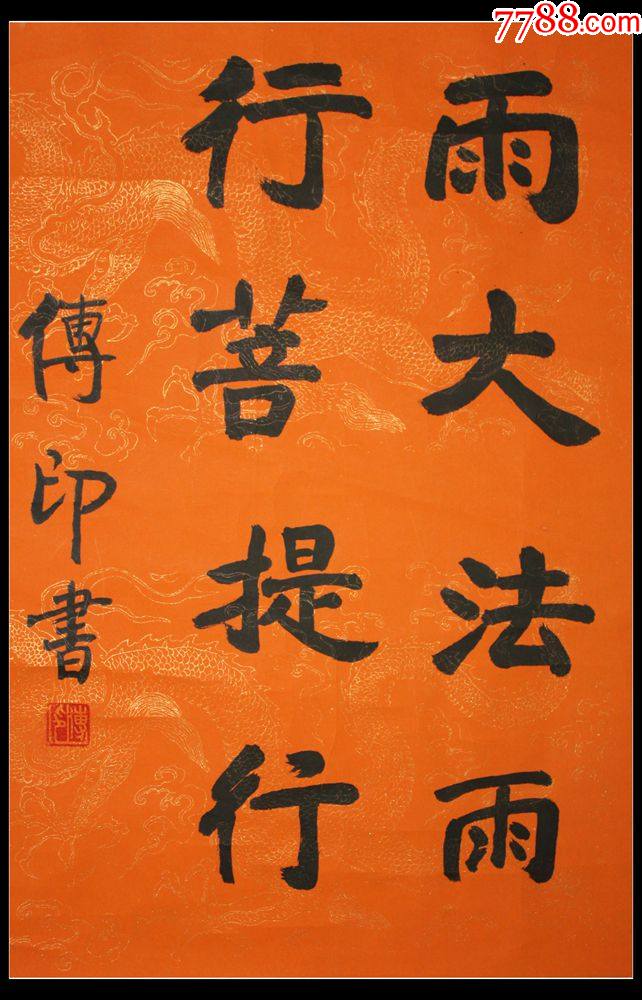 7788.com
雨大法雨
行菩提行
傅印書
傅印